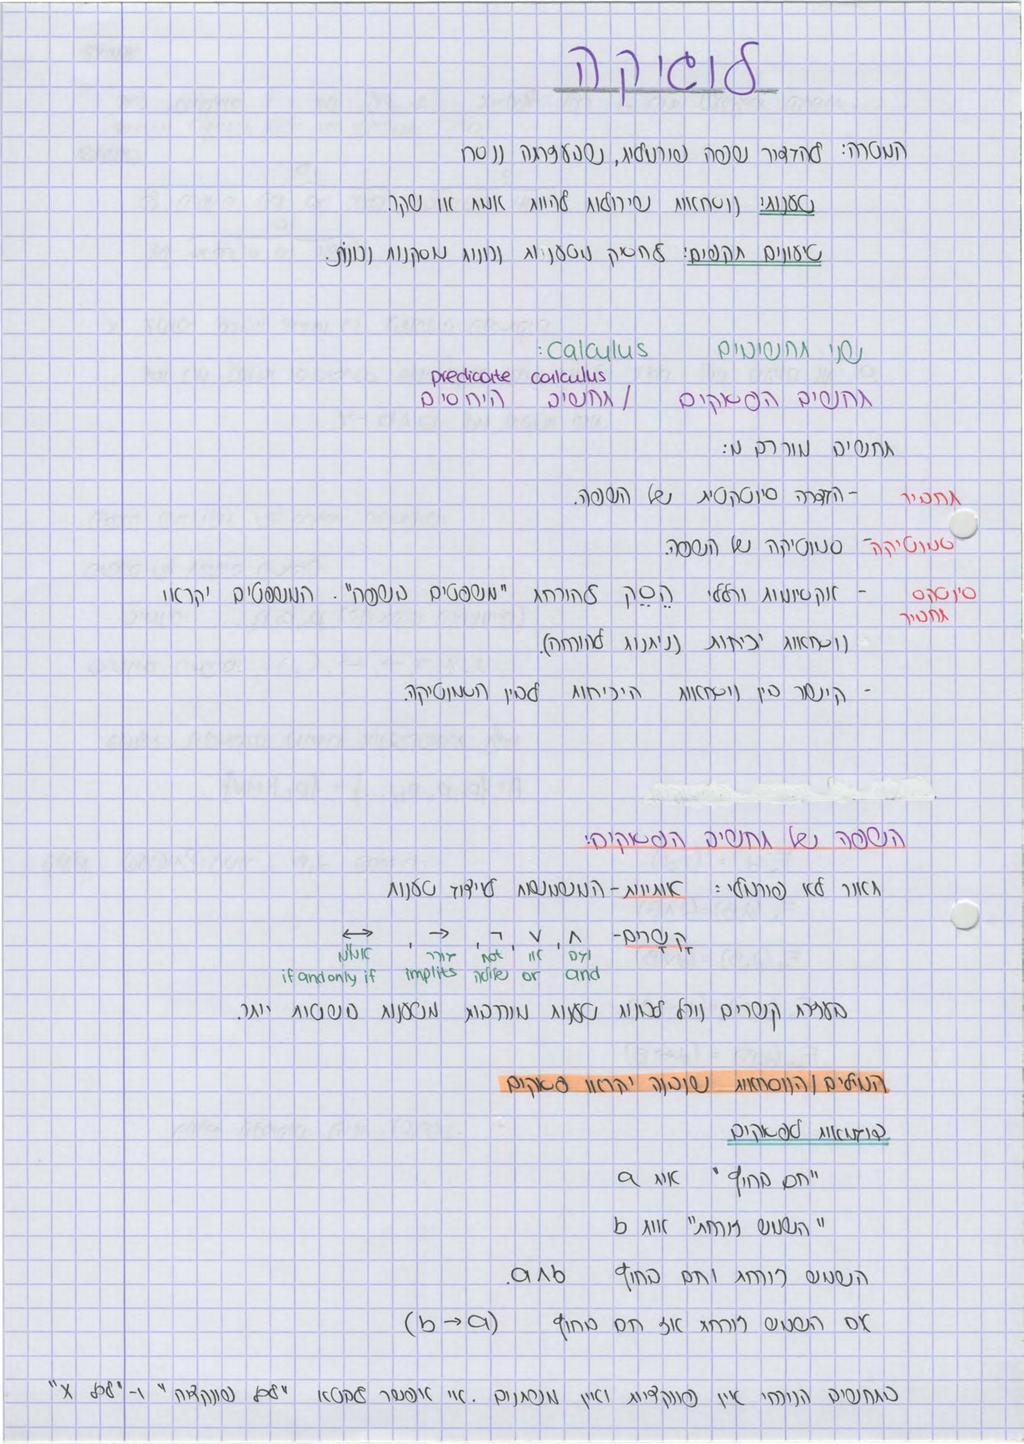 לוגיקה
המטרה: להגדיר שפה פורמלית, שבעזרתה ננסח
טענות: נוסחאות שיכולות להיות אמת או שקר.
טיעונים תקפים: להסיק מטענות נכונות מסקנות נכונות.
שני תחשיבים Calculus:
predicate calculus
תחשיב הפסוקים / תחשיב היחסים
תחשיב מורכב מ:
תחביר - הגדרה סינטקטית של השפה.
סמנטיקה - סמנטיקה של השפה.
סינטקס תחביר - אקסיומות וכללי הֶסֵק להוכחת "משפטים בשפה". המשפטים יקראו
נוסחאות יכיחות (ניתנות להוכחה).
- הקשר בין נוסחאות היכיחות לבין הסמנטיקה.
השפה של תחשיב הפסוקים:
תאור לא פורמלי: אותיות - המשמשות לייצוג טענות
קַשָּרים - ∧, ∨, ¬, →, ↔
וגם או not גורר אמ"מ
and or שלילה implies if and only if
בעזרת קשרים נוכל לבנות טענות מורכבות מטענות פשוטות יותר.
המילים / הנוסחאות שנבנה יקראו פסוקים
דוגמאות לפסוקים
"חם בחוץ" אות a
"השמש זורחת" אות b
השמש זורחת וחם בחוץ a∧b.
אם השמש זורחת אז חם בחוץ (b→a)
בתחשיב הנוכחי אין פונקציות ואין משתנים. אי אפשר לבטא "לכל פונקציה" ו-"לכל x"